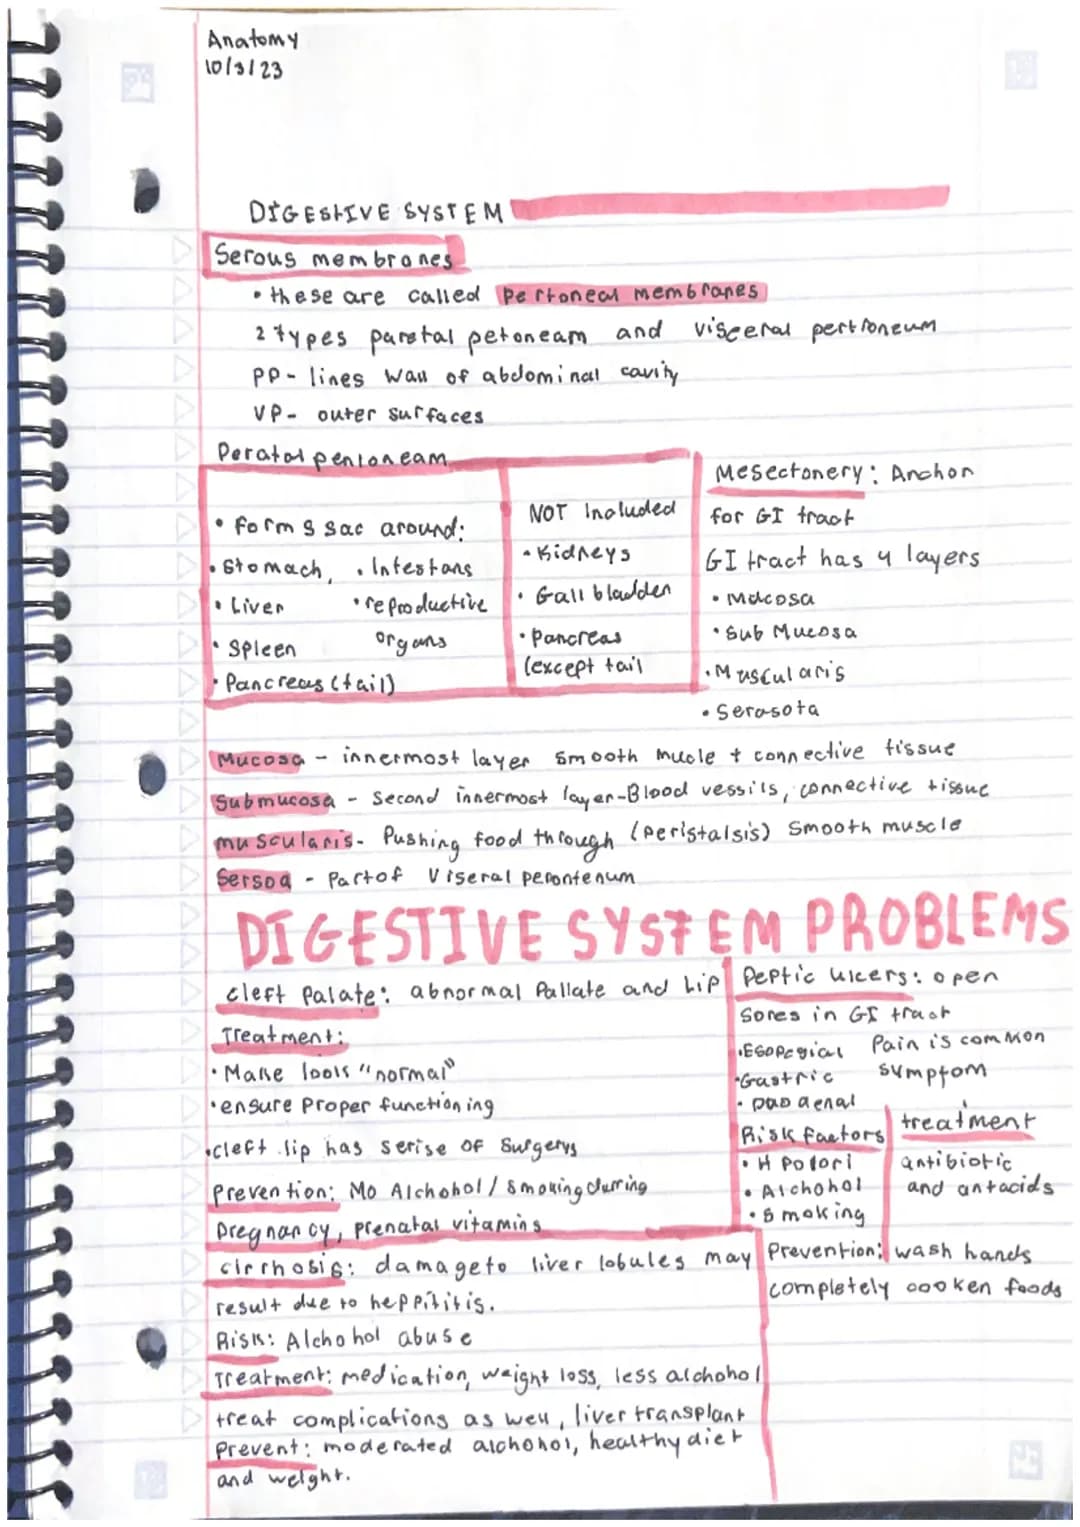 Anatomy
10/3/23
DIGESTIVE SYSTEM
Serous membranes
• these are called Pertoneal membranes
2 types paretal petoneam and visceral pertroneum
PP - lines wall of abdominal cavity
VP - outer surfaces
Peratal penloneam
• forms sac around:
• Stomach, • Intestans
• Liver • reproductive
• Spleen organs
• Pancreas (tail)
NOT Included
• Kidneys
• Gall bladder
• Pancreas
(except tail
Mesectonery: Anchor
for GI tract
GI tract has 4 layers
• Mucosa
• Sub Mucosa
• Muscularis
• Serasota
Mucosa - innermost layer smooth mucle + connective tissue
Submucosa - Second innermost layer-Blood vessils, connective tissue
muscularis - Pushing food through (peristalsis) Smooth muscle
Sersoa - Part of Viseral perontenum
DIGESTIVE SYSTEM PROBLEMS
Cleft Palate: abnormal Pallate and Lip
Treatment:
• Make look "normal"
• ensure Proper functioning
• cleft lip has serise of Surgerys
Prevention: No Alchohol / smoking durring
Pregnancy, prenatal vitamins
Peptic ulcers: open
Sores in GI tract
• Esopegial Pain is common
• Gastric symptom
• Duodenal
Risk factors
• H Polori
• Alchohol
• Smoking
treatment
antibiotic
and antacids
Prevention: wash hands
completely cooken foods
Cirrhosis: damage to liver lobules may
result due to heppititis.
Risk: Alchohol abuse
Treatment: medication, weight loss, less alchohol
treat complications as well, liver transplant
Prevent: moderated alchohol, healthy diet
and weight.